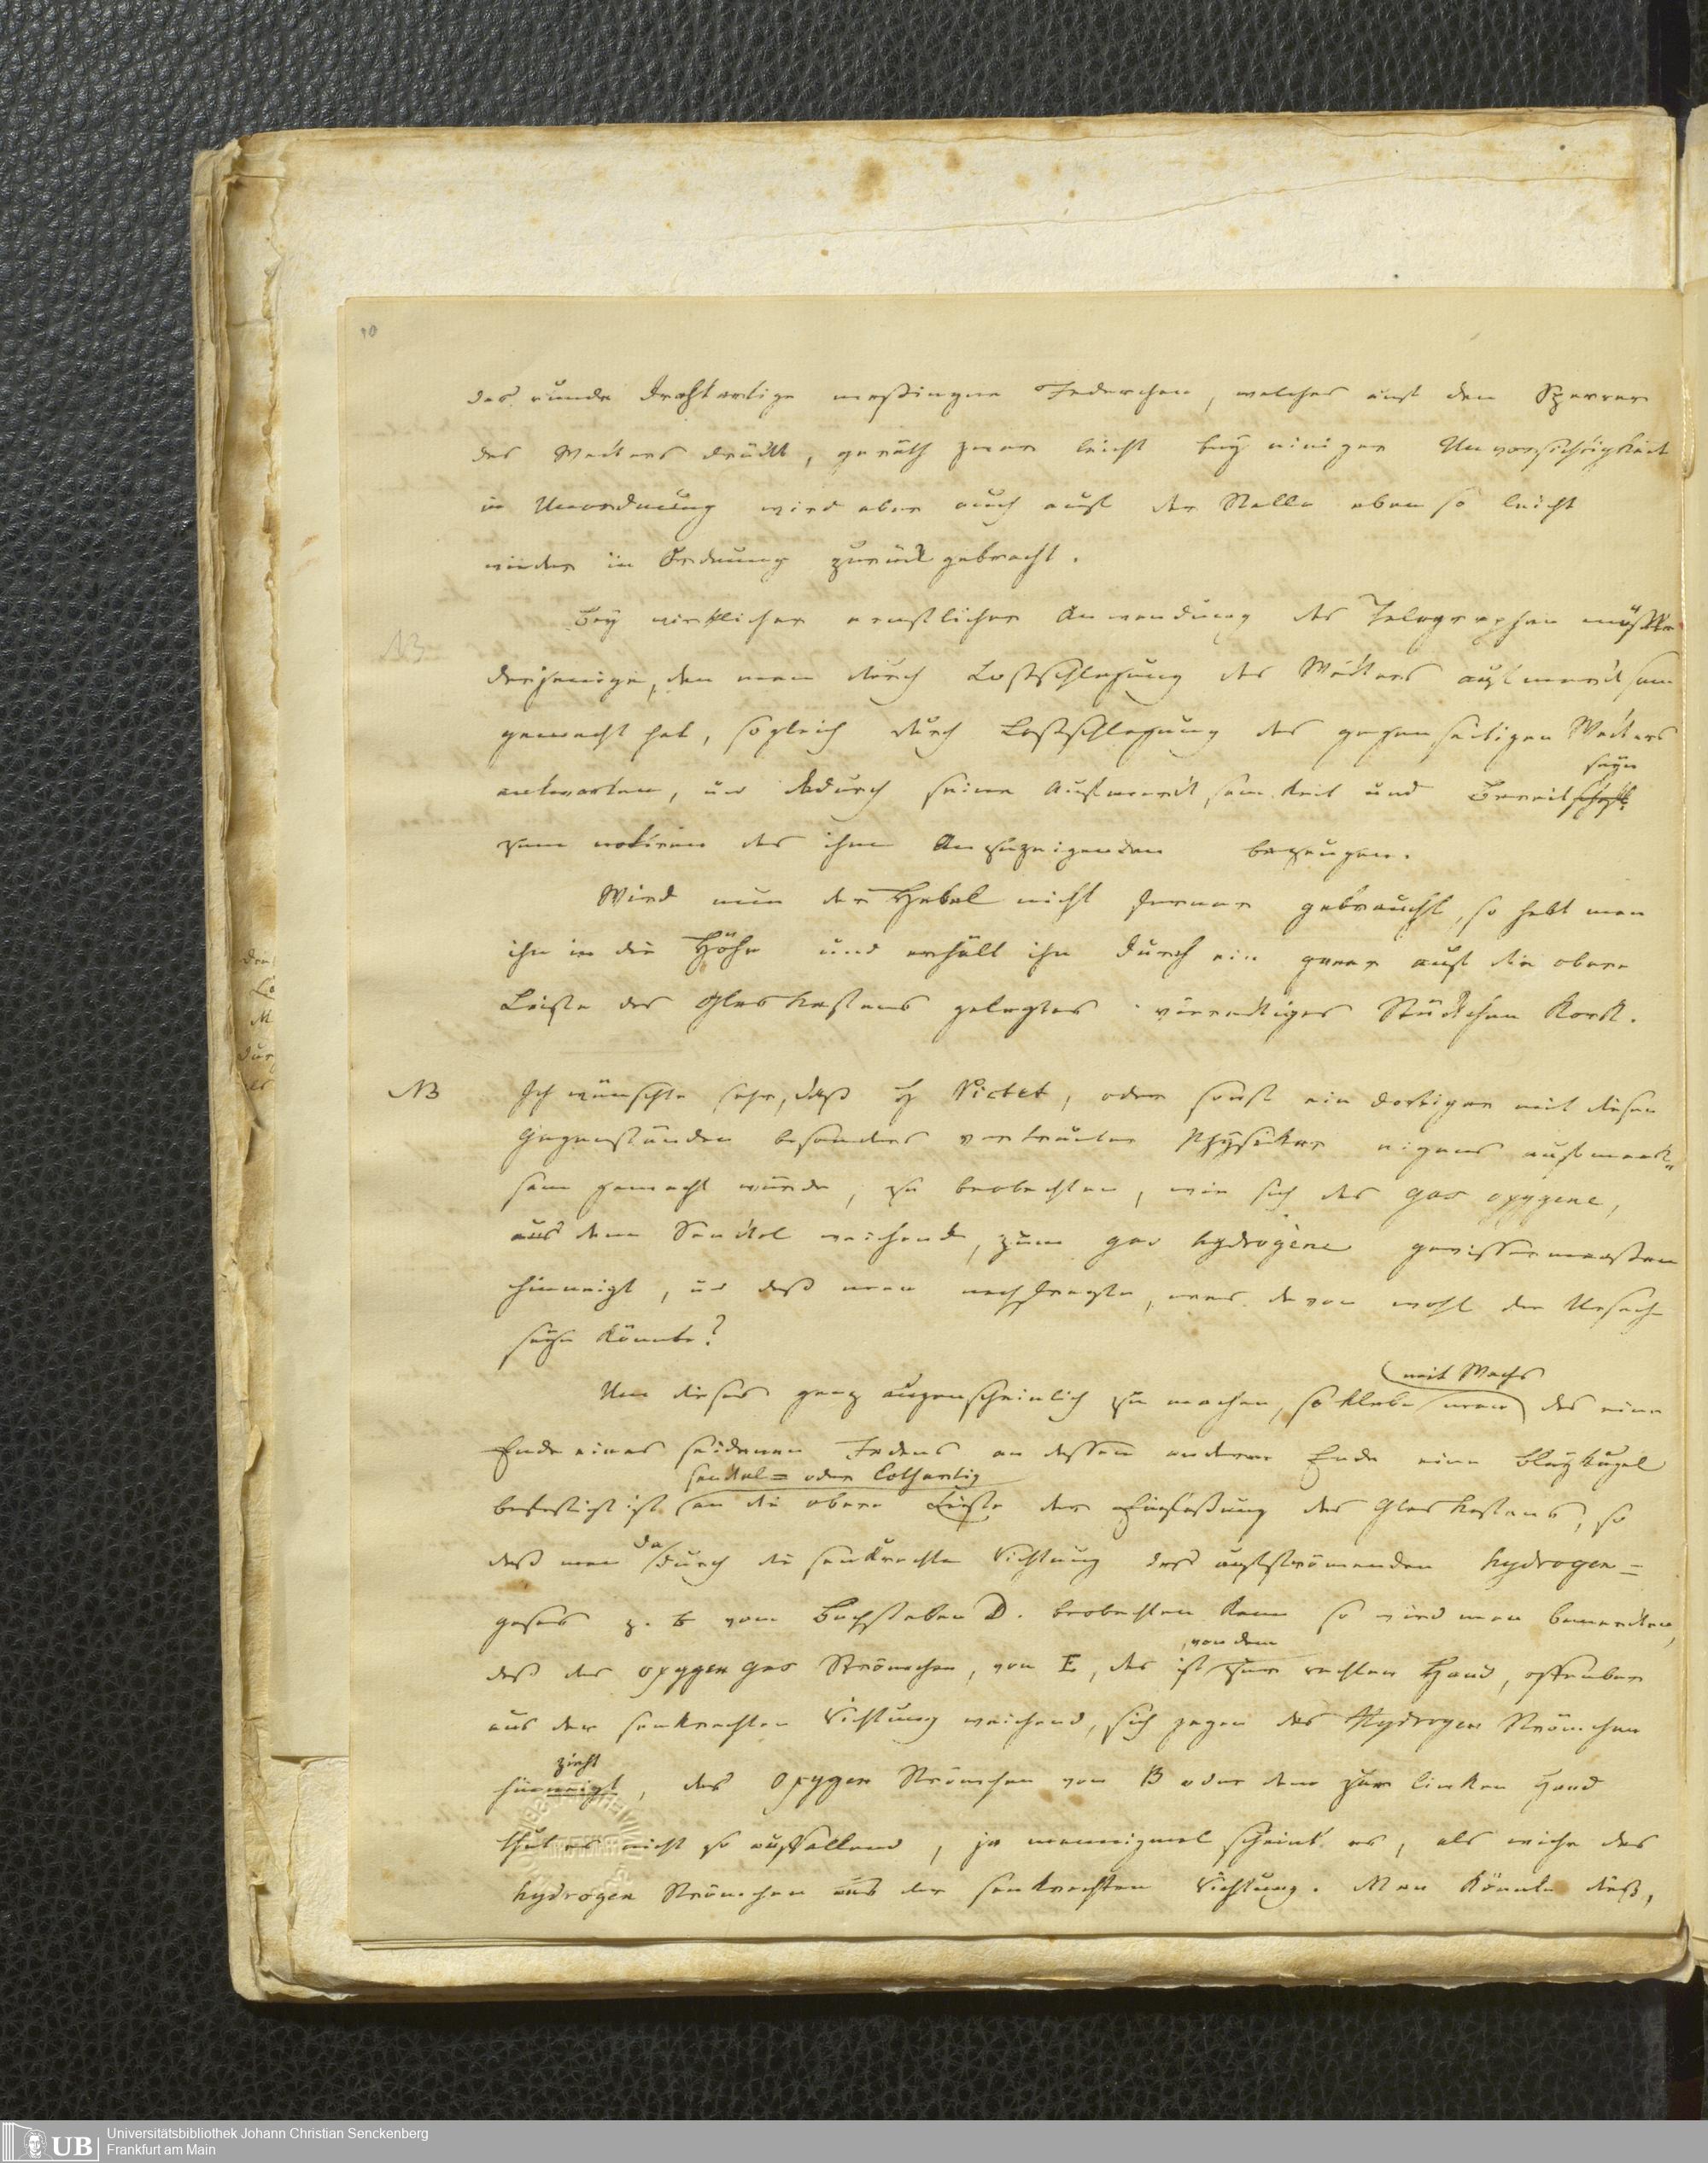 10
das runde drahtartige messingne Federchen, welches auf den Sperrer
des Weckers drückt, geräth zwar leicht bey einiger Unvorsichtigkeit
in Unordnung wird aber auch auf der Stelle eben so leicht
wieder in Ordnung zurückgebracht.
Bey wirklicher ernstlicher Anwendung des Telegraphen müsste
NB
derjenige, den man durch Losschlagung des Weckers aufmerksam
gemacht hat, sogleich durch Losschlagung des gegenseitigen Weckers
seyn
antworten, und dadurch seine Aufmerksamkeit und Bereitschaft
zum notiren des ihm Anzuzeigenden bezeugen.
Wird nun der Hebel nicht ferner gebraucht, so hebt man
ihn in die Höhe und erhält ihn durch ein quer auf die obere
Leiste des Glaskastens gelegtes viereckiges Stückchen Kork.
NB Ich wünschte sehr, daß H Pictet, oder sonst ein dortiger mit diesen
Gegenständen besonders vertrauter Physiker eigens aufmerk=
sam gemacht würde, zu beobachten, wie sich das gas oxygene,
aus dem Senckel weichend, zum gas hydrogène gewissermassen
hinneigt, und daß man nachfragte, was davon wohl die Ursach
seyn könnte?
mit Wachs
Um dieses ganz augenscheinlich zu machen, so klebe man das eine
Ende eines seidenen Fadens an dessen anderm Ende eine Bleykugel
senckel= oder Lothartig
befestigt ist an die obere Leiste der Einfassung des Glaskastens, so
da
daß man durch die senkrechte Richtung des aufströmenden hydrogen=
gases z. B vom Buchstaben D. beobachten kann so wird man bemerken,
, von dem
daß das oxygen gas Strömchen, von E, das ist zur rechten Hand, offenbar
aus der senkrechten Richtung weichend, sich gegen das Hydrogen Strömchen
zieht
hinneigt, das Oxygen Strömchen von B oder dem zur linken Hand
thut es nicht so auffallend, ja mannigmal scheint es, als weiche das
hydrogen Strömchen aus der senkrechten Richtung. Man könnte dieß,
UB
Universitätsbibliothek Johann Christian Senckenberg
Frankfurt am Main